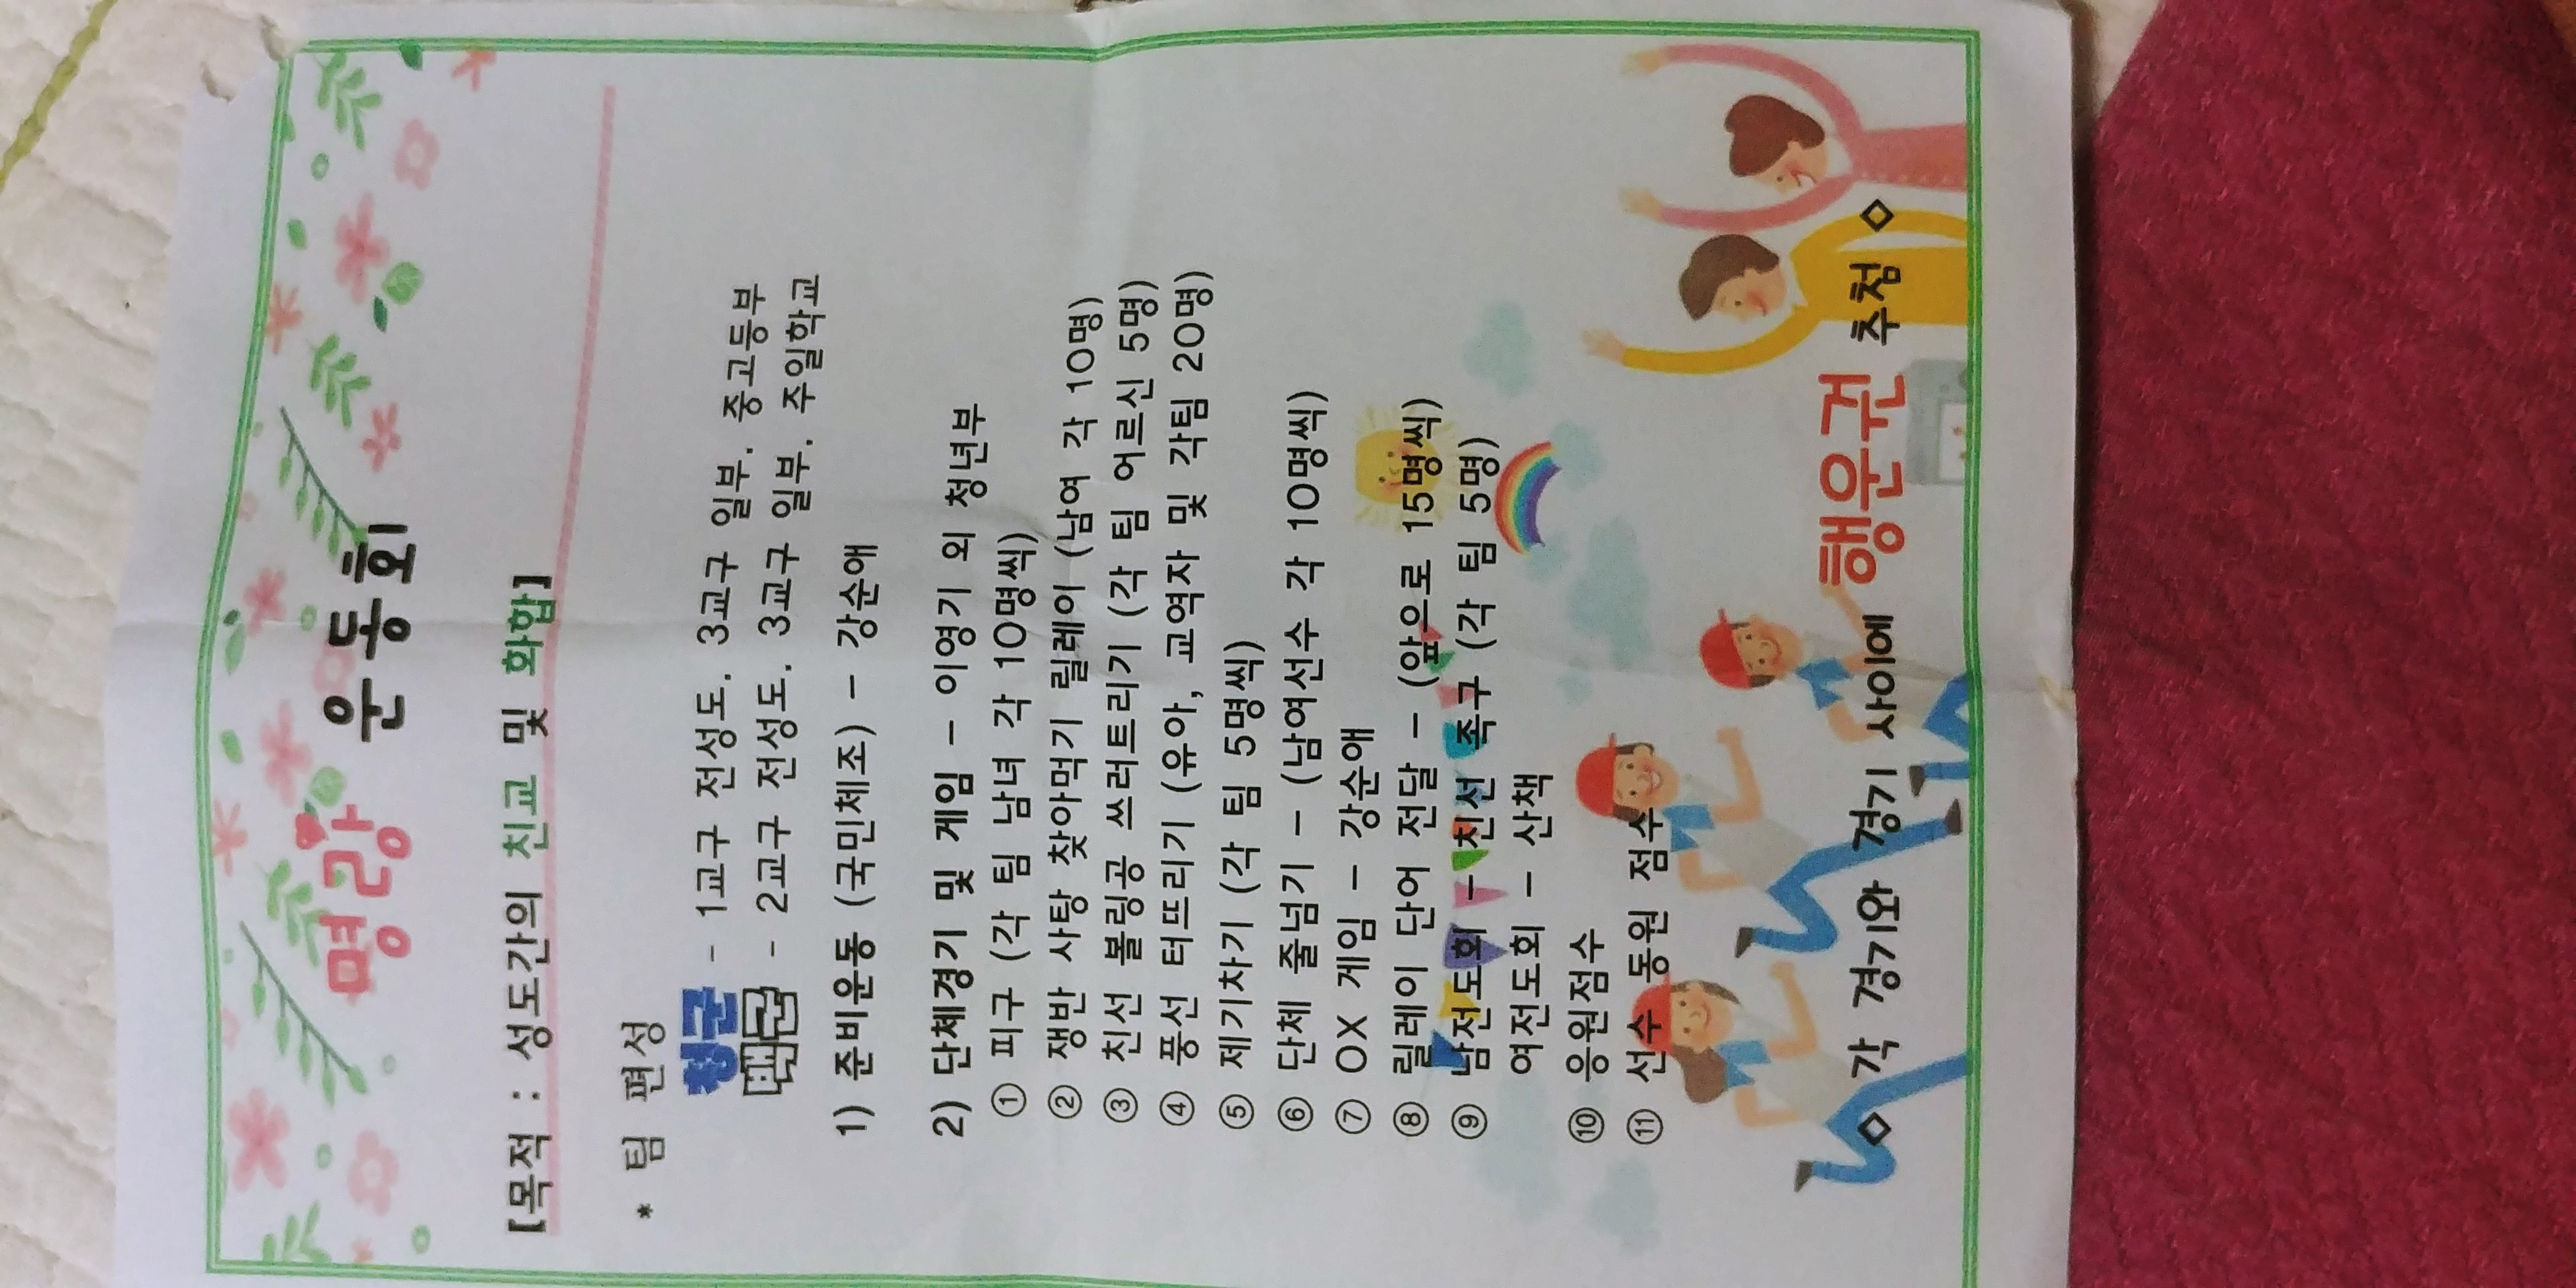 명랑 운동회
[목적 : 성도간의 친교 및 화합]
* 팀 편성
청군 - 1교구 전성도. 3교구 일부. 중고등부
백군 - 2교구 전성도. 3교구 일부. 주일학교
1) 준비운동 (국민체조) - 강순애
2) 단체경기 및 게임 - 이영기 외 청년부
① 피구 (각 팀 남녀 각 10명씩)
② 쟁반 사탕 찾아먹기 릴레이 (남여 각 10명)
③ 친선 볼링공 쓰러트리기 (각 팀 어르신 5명)
④ 풍선 터뜨리기 (유아, 교역자 및 각팀 20명)
⑤ 제기차기 (각 팀 5명씩)
⑥ 단체 줄넘기 - (남여선수 각 10명씩)
⑦ OX 게임 - 강순애
⑧ 릴레이 단어 전달 - (앞으로 15명씩)
⑨ 남전도회 - 친선 족구 (각 팀 5명)
여전도회 - 산책
⑩ 응원점수
⑪ 선수 동원 점수
◇ 각 경기와 경기 사이에 행운권 추첨 ◇